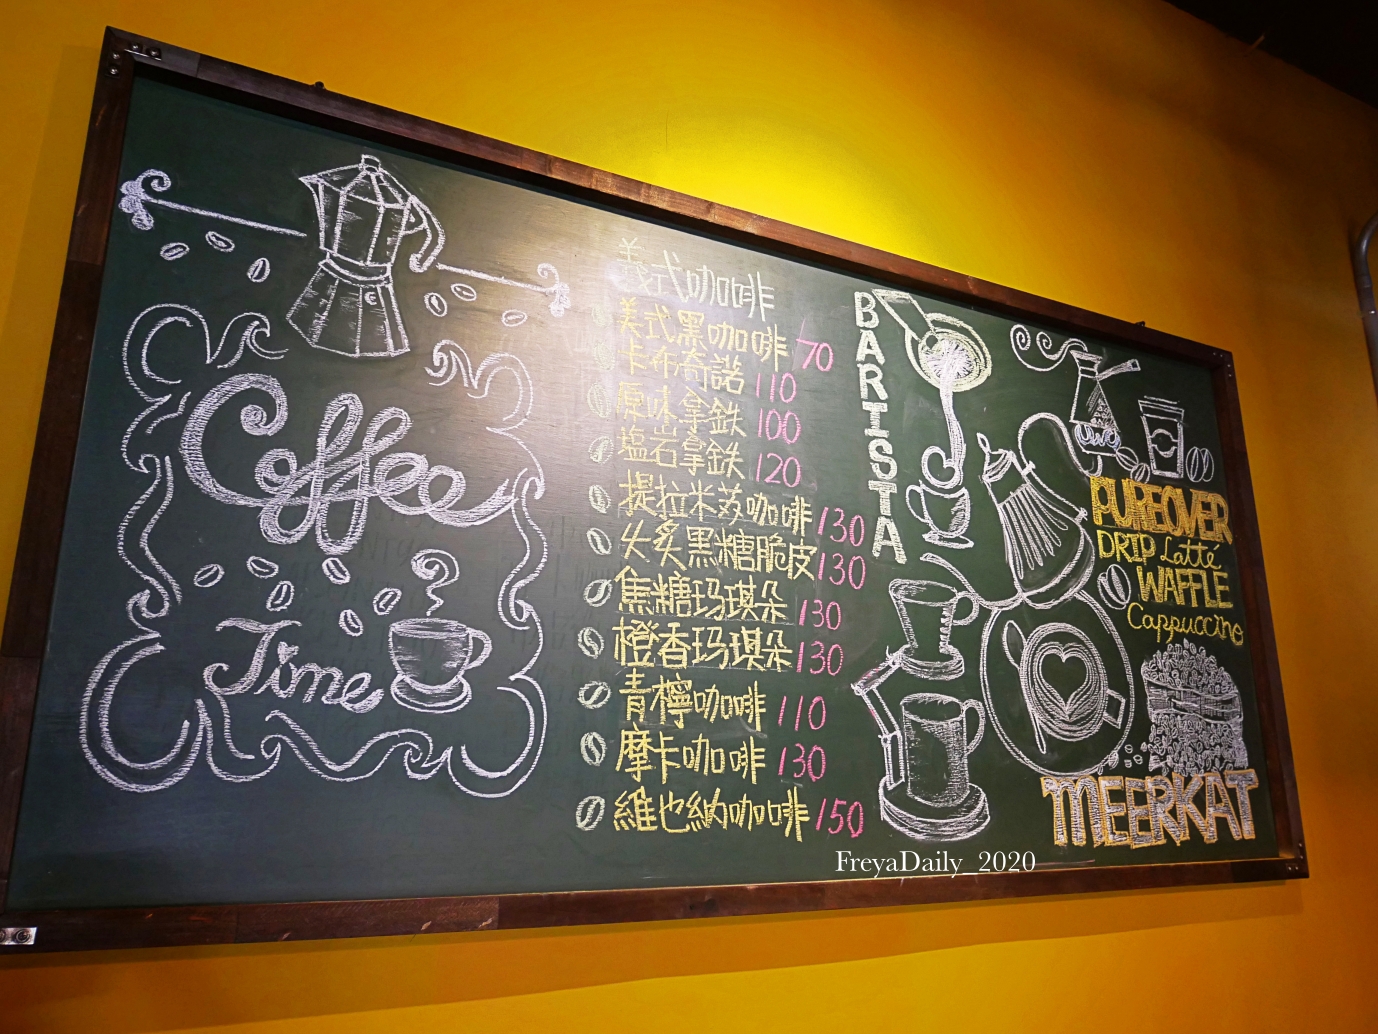 Coffee
Time
義式咖啡
美式黑咖啡 70
卡布奇諾 110
原味拿鉄 100
塩岩拿鉄 120
提拉米蘇咖啡 130
火炙黑糖脆皮 130
焦糖玛琪朵 130
橙香玛琪朵 130
青檸咖啡 110
摩卡咖啡 130
維也納咖啡 150
BARISTA
PUREOVER
DRIP Latté
WAFFLE
Cappuccino
MEERKAT
FreyaDaily_2020